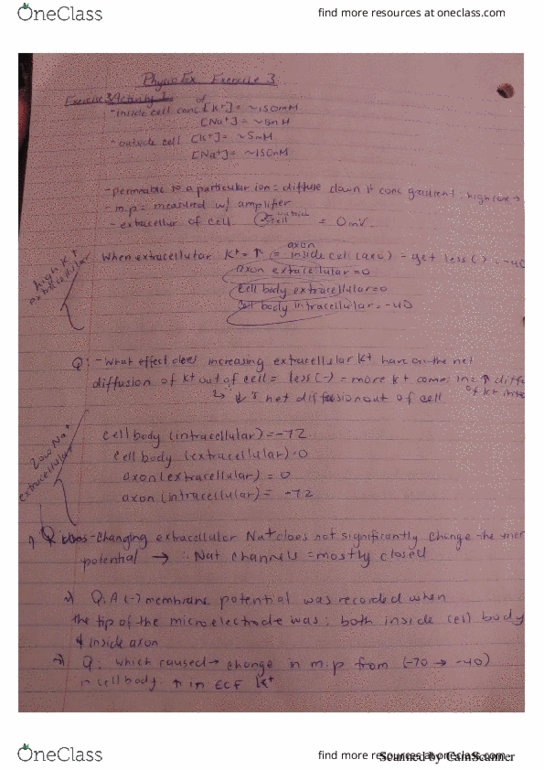 OneClass
find more resources at oneclass.com
PhysioEx Exercise 3
Exercise 3 Activity 1
- inside cell conc of [K+] = ~150mM
[Na+] = ~5mM
- outside cell [K+] = ~5mM
[Na+] = ~150mM
- permeable to a particular ion = diffuse down it conc gradient : high low →
- m.p = measured w/ amplifier
- extracelluar of cell outside cell = 0mV
high K+ extracellular
When extracellular K+ = ↑ = axon inside cell - get less (-) = -40
axon extracellular = 0
cell body extracellular = 0
cell body intracellular = -40
Q: - What effect does increasing extracellular K+ have on the net
diffusion of K+ out of cell = less (-) = more K+ come in ↑
↓ net diffusion out of cell of K+ into
low Na+ extracellular
cell body (intracellular) = -72
cell body (extracellular) = 0
axon (extracellular) = 0
axon (intracellular) = -72
Q - Changing extracellular Na+ does not significantly change the
potential → ∴ Na+ channels = mostly closed
Q. A (-) membrane potential was recorded when
the tip of the microelectrode was : both inside cell body
& inside axon
Q: which caused → change in m.p from (-70 → -40)
in cell body ↑ in ECF K+
OneClass
find more resources at oneclass.com
Scanned by CamScanner